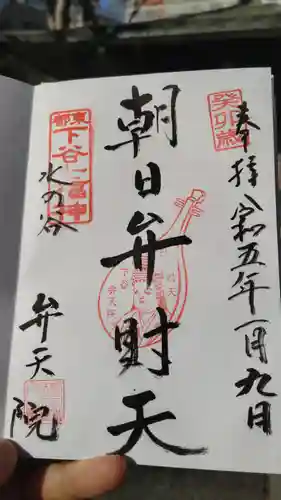 癸卯歳
奉拝 令和五年一月九日
朝日弁財天
東都
下谷
七福神
水の谷
弁天院